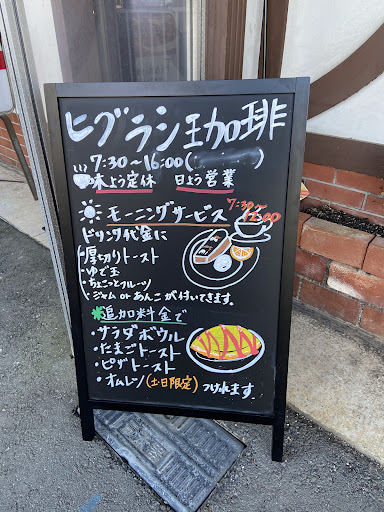 ヒグラシ珈琲
7:30～16:00(
木よう定休 日よう営業
モーニングサービス 7:30~
12:00
ドリンク代金に
・厚切りトースト
・ゆで玉
・ちょこっとフルーツ
・ジャム or あんこ が付いてきます。
追加料金で
・サラダボウル
・たまごトースト
・ピザトースト
・オムレツ(土日限定) つけれます